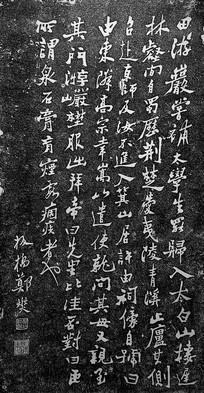 田游巖嘗補太學生罷歸入太白山棲遲
林壑間自蜀歷荊楚愛夷陵青溪止廬其側
召赴京師及汝不進入箕山居許由祠傍自號曰
由東隣高宗幸嵩山遣使就問其母又親至
其門游巖野服出拜帝曰先生比佳否對曰臣
所謂泉石膏肓煙霞痼疾者也
板橋鄭燮